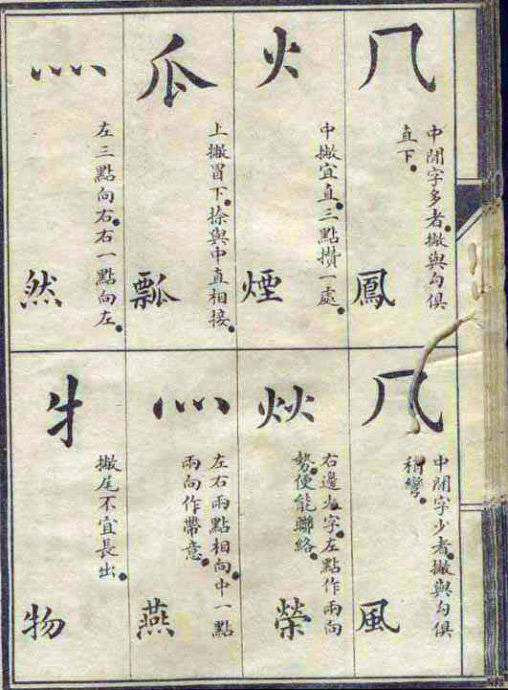 几
中閒字多者。撇與勾俱
直下。
鳳
火
中撇宜直。三點攢一處。
煙
瓜
上撇冒下。捺與中直相接。
瓢
灬
左三點向右。右一點向左。
然
几
中閒字少者。撇與勾俱
稍彎。
風
炏
右邊火字。左點作兩向
勢。便能聯絡。
榮
灬
左右兩點相向。中一點
兩向作帶意。
燕
牜
撇尾不宜長出。
物